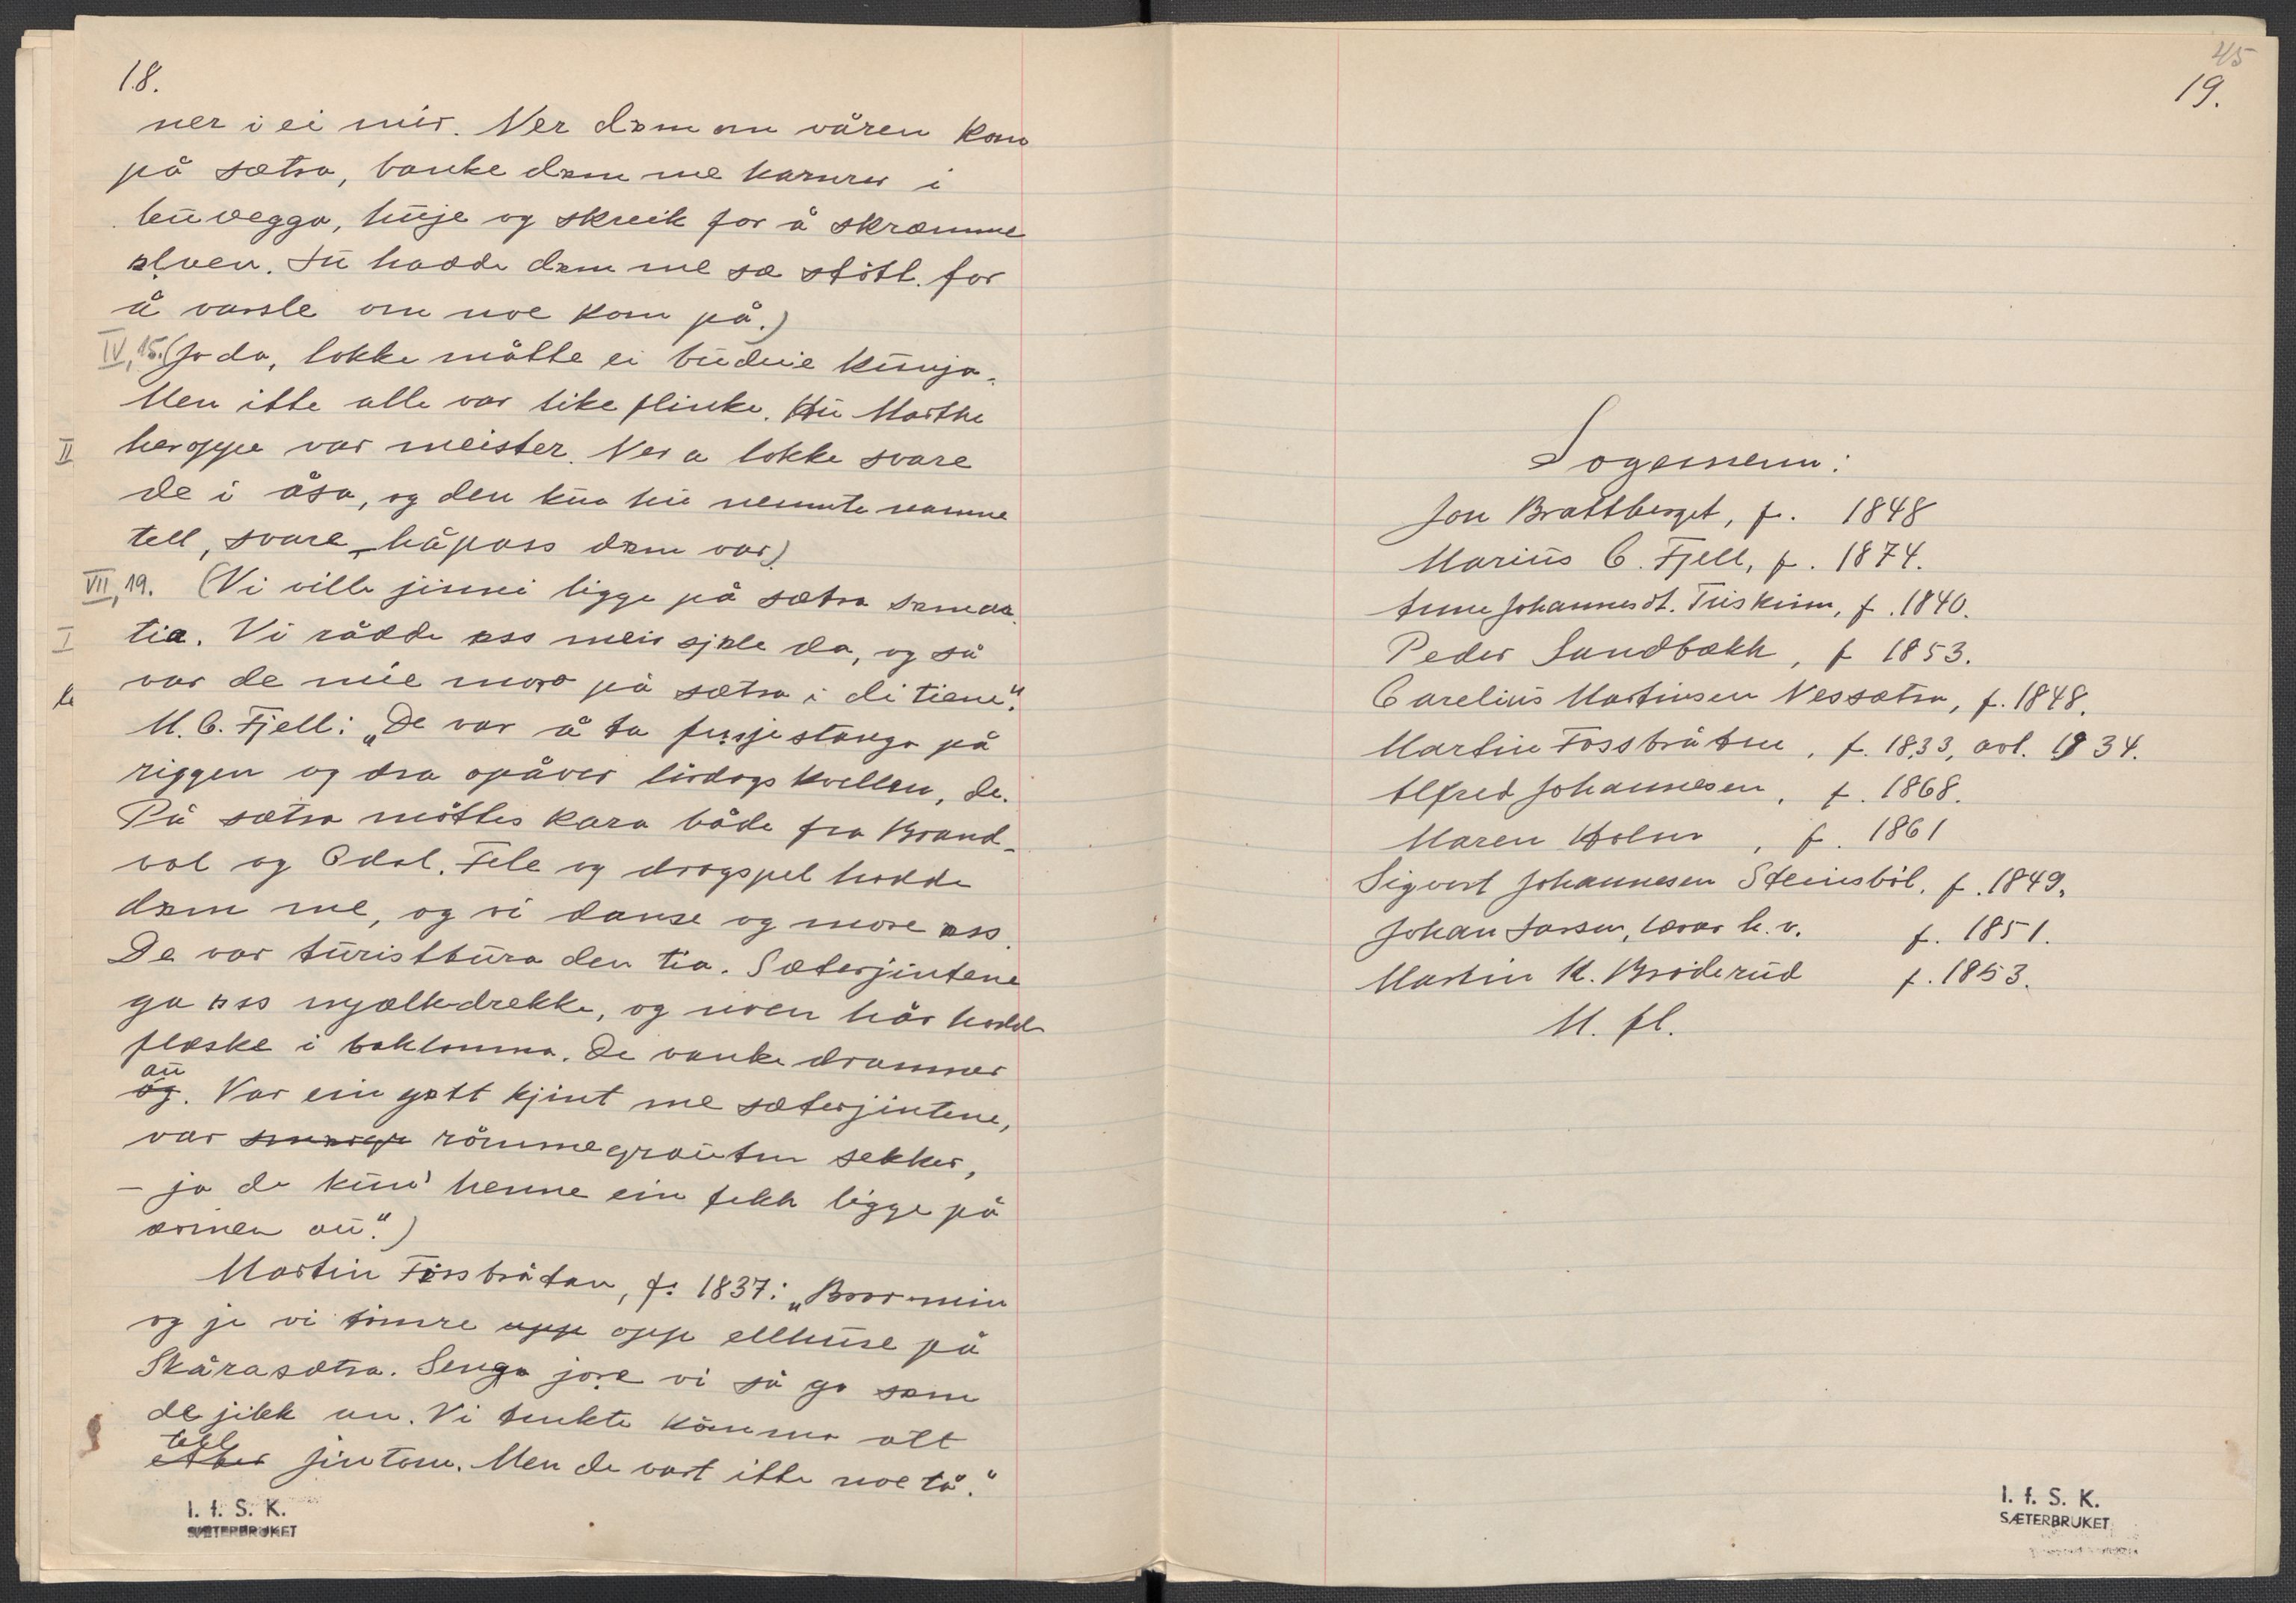 18.
ner i ei mir. Ner dæm om våren kom
på sætra, banke dæm me hamrer i
buvegga, huje og skreik for å skræmme
ælven. Lu hadde dæm me sæ støtt for
å varsle om noe kom på.)
IV, 15. (Jo da, lokke måtte ei budeie kunja.
Men itte alle var like flinke. Hu Marthe
II heroppe var meister. Ner a lokke svare
de i åsa, og den kua hu nemnte namne
tell, svare håpass dæm var)
VII, 19. (Vi ville jinni ligge på sætra sæmda
I tia. Vi rådde æss meir sjøle da, og så
var de mie moro på sætra i di tiene".
M. C. Fjell: „De var å ta fersjestanga på
riggen og dra opåver lirdagskvellen, de.
På sætra møttes kara både fra Brand-
val og Odal. Fele og dragspel hadde
dæm me, og vi danse og more æss.
De var turistbura den tia. Sæterjintene
ga æss mjælkedrekke, og noen hår hadde
flæske i baklomma. De vanke drammer
au
og. Var ein gøtt kjint me sæterjintene,
var rømmegrauten sekker,
– ja de kunn' henne ein fekk ligge på
armen au.")
Martin Fossbråtan, f. 1837: „Bror min
og je vi timre opp opp ellhuse på
Skårasætra. Senga jore vi så ga som
de jikk an. Vi tenkte kømma att
tell
etter jintom. Men de vart itte noe tå."
I. f. S. K.
SÆTERBRUKET
45
19.
Sogemenn:
Jon Brattberget, f. 1848
Marius C. Fjell, f. 1874.
Anne Johannesdt. Tuskinn, f. 1840.
Peder Sandbækk, f 1853.
Carelius Martinsen Nessætra, f. 1848.
Martin Fossbråten, f. 1833, avl. 1934.
Alfred Johannesen, f. 1868.
Maren Holm, f. 1861
Sigvart Johannesen Steinsböl, f. 1849.
Johan Larsen, lærar h. v. f. 1851.
Martin K. Bröderud f. 1853.
M. fl.
I. f. S. K.
SÆTERBRUKET